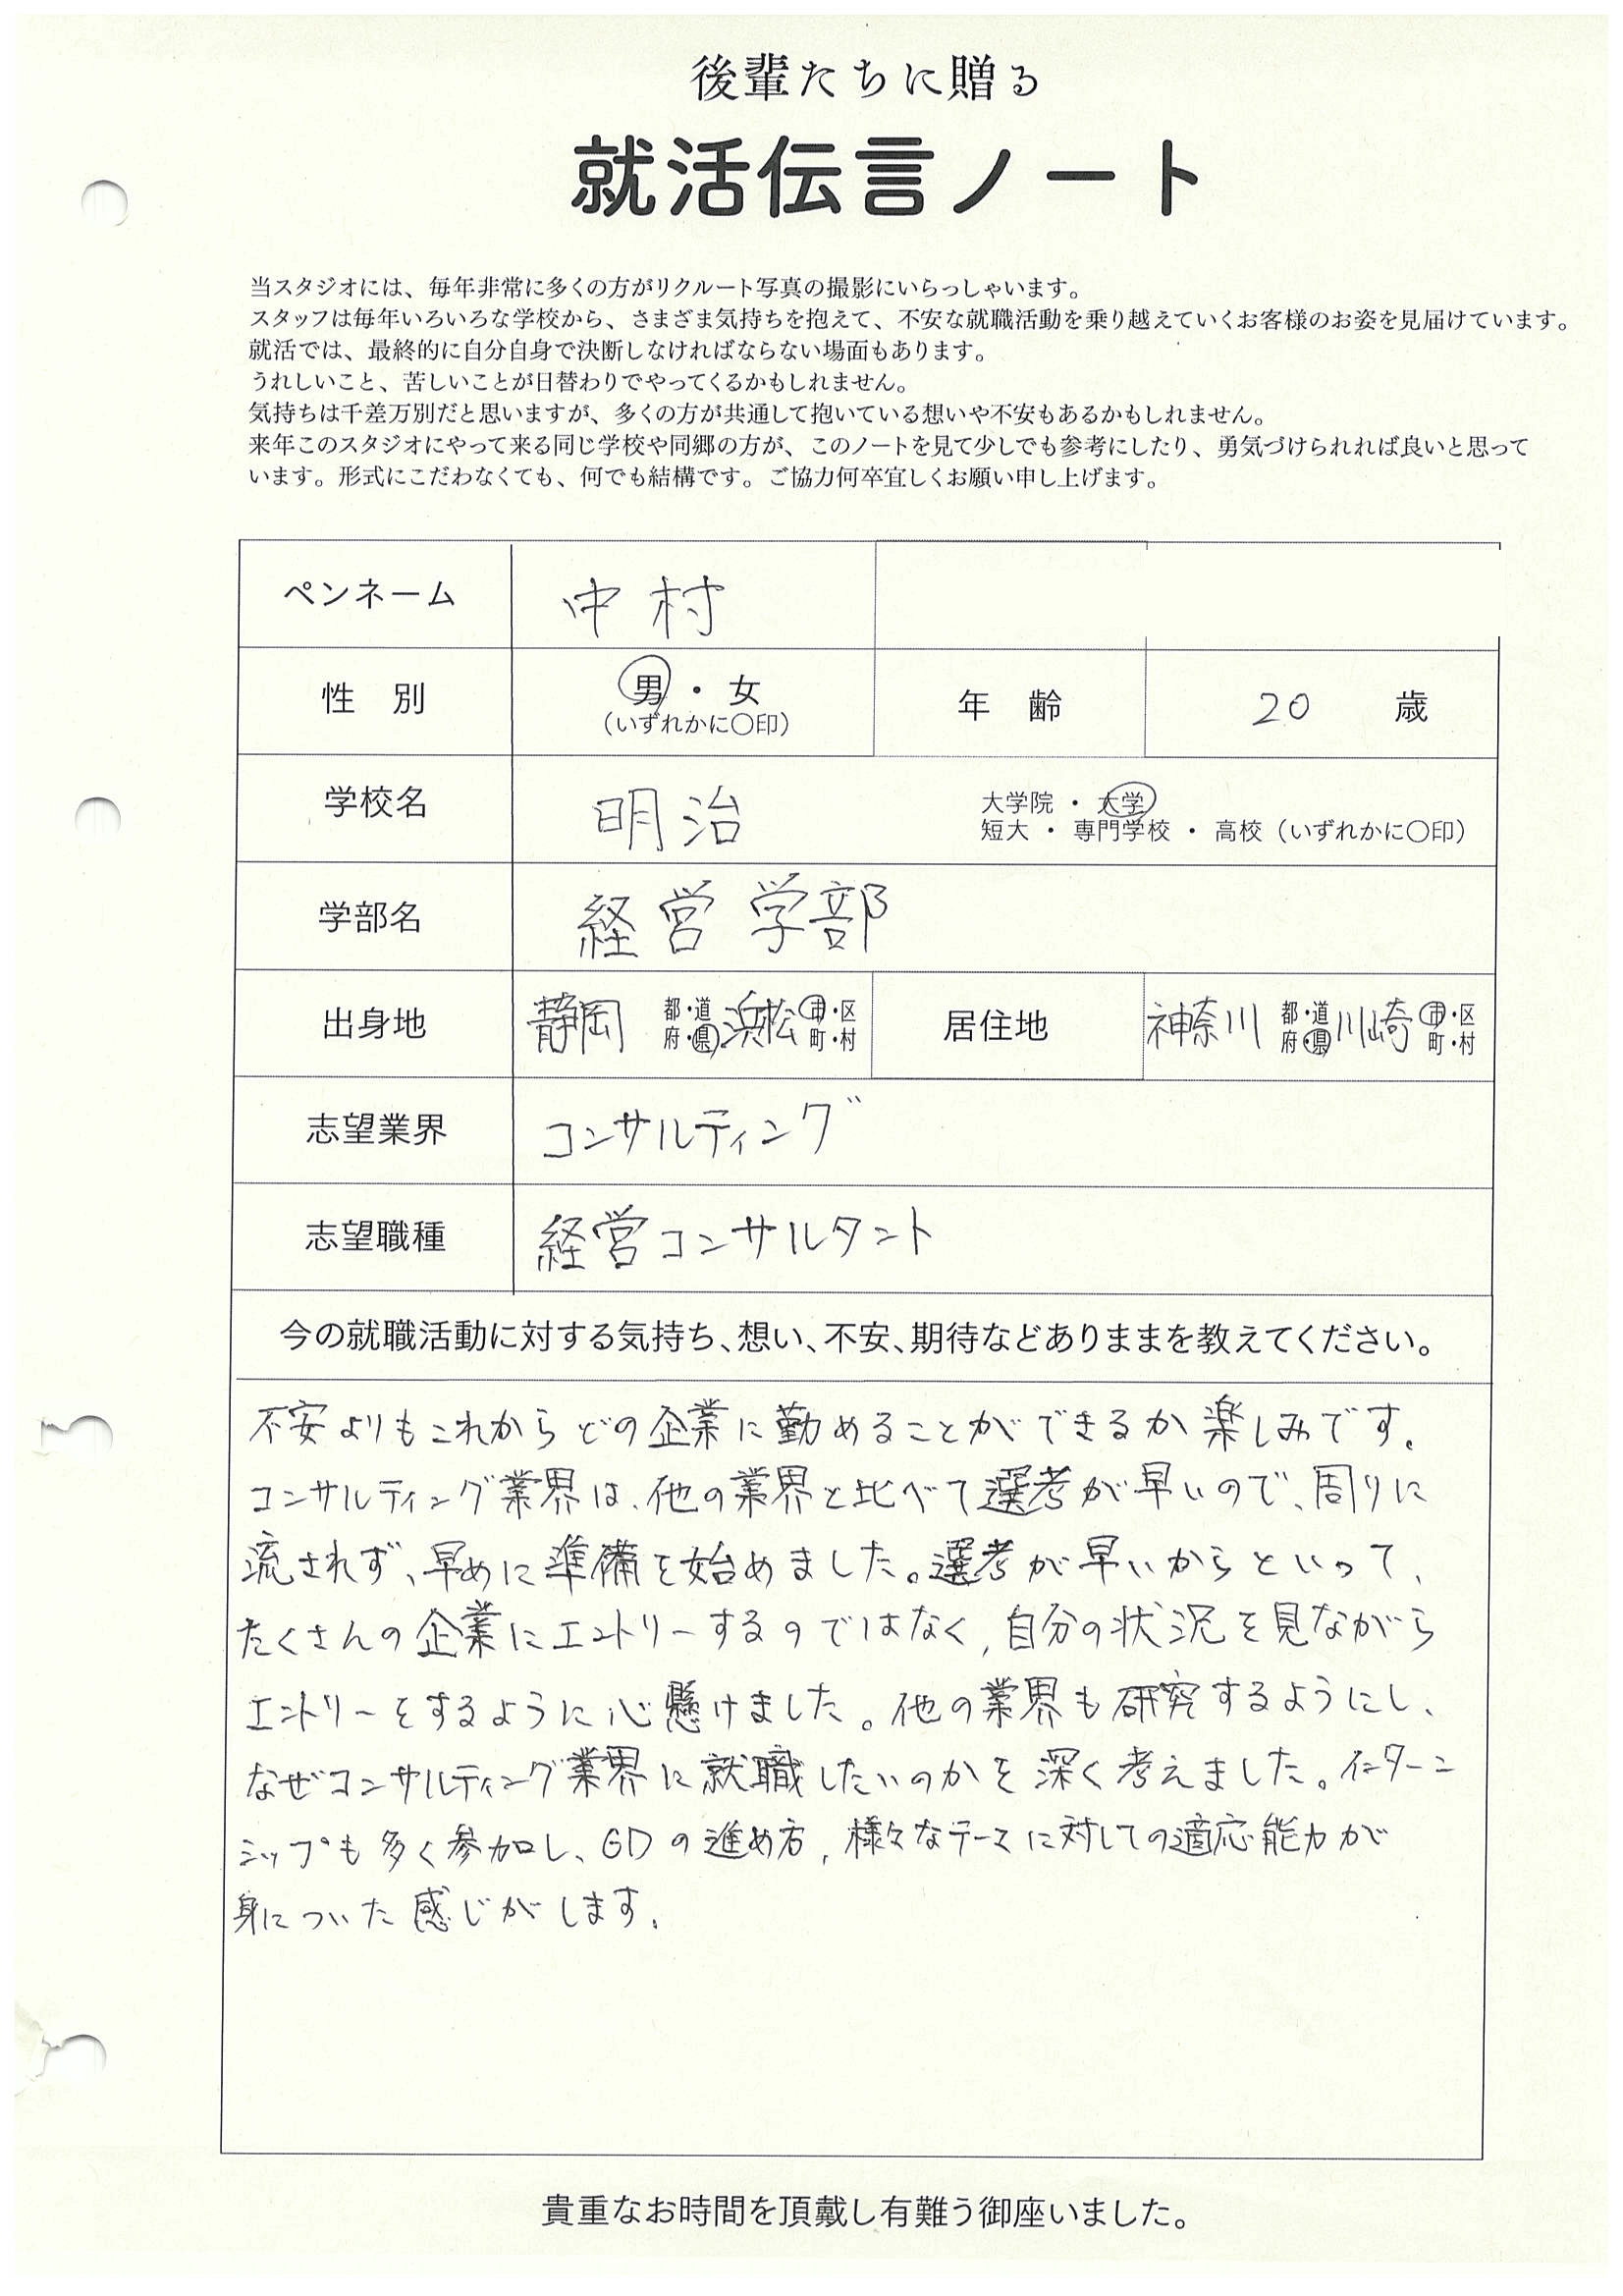 後輩たちに贈る
就活伝言ノート
当スタジオには、毎年非常に多くの方がリクルート写真の撮影にいらっしゃいます。
スタッフは毎年いろいろな学校から、さまざま気持ちを抱えて、不安な就職活動を乗り越えていくお客様のお姿を見届けています。
就活では、最終的に自分自身で決断しなければならない場面もあります。
うれしいこと、苦しいことが日替わりでやってくるかもしれません。
気持ちは千差万別だと思いますが、多くの方が共通して抱いている想いや不安もあるかもしれません。
来年このスタジオにやって来る同じ学校や同郷の方が、このノートを見て少しでも参考にしたり、勇気づけられれば良いと思って
います。形式にこだわなくても、何でも結構です。ご協力何卒宜しくお願い申し上げます。
ペンネーム 中村
性 別 男・女 年 齢 20 歳
（いずれかに〇印）
学校名 明治 大学院・大学
短大・専門学校・高校（いずれかに〇印）
学部名 経営学部
出身地 静岡 都・道 府・県 浜松 市・区 町・村 居住地 神奈川 都・道 府・県 川崎 市・区 町・村
志望業界 コンサルティング
志望職種 経営コンサルタント
今の就職活動に対する気持ち、想い、不安、期待などありままを教えてください。
不安よりもこれからどの企業に勤めることができるか楽しみです。
コンサルティング業界は、他の業界と比べて選考が早いので、周りに
流されず、早めに準備を始めました。選考が早いからといって、
たくさんの企業にエントリーするのではなく、自分の状況を見ながら
エントリーをするように心懸けました。他の業界も研究するようにし、
なぜコンサルティング業界に就職したいのかを深く考えました。インターン
シップも多く参加し、GDの進め方、様々なテーマに対しての適応能力が
身についた感じがします。
貴重なお時間を頂戴し有難う御座いました。